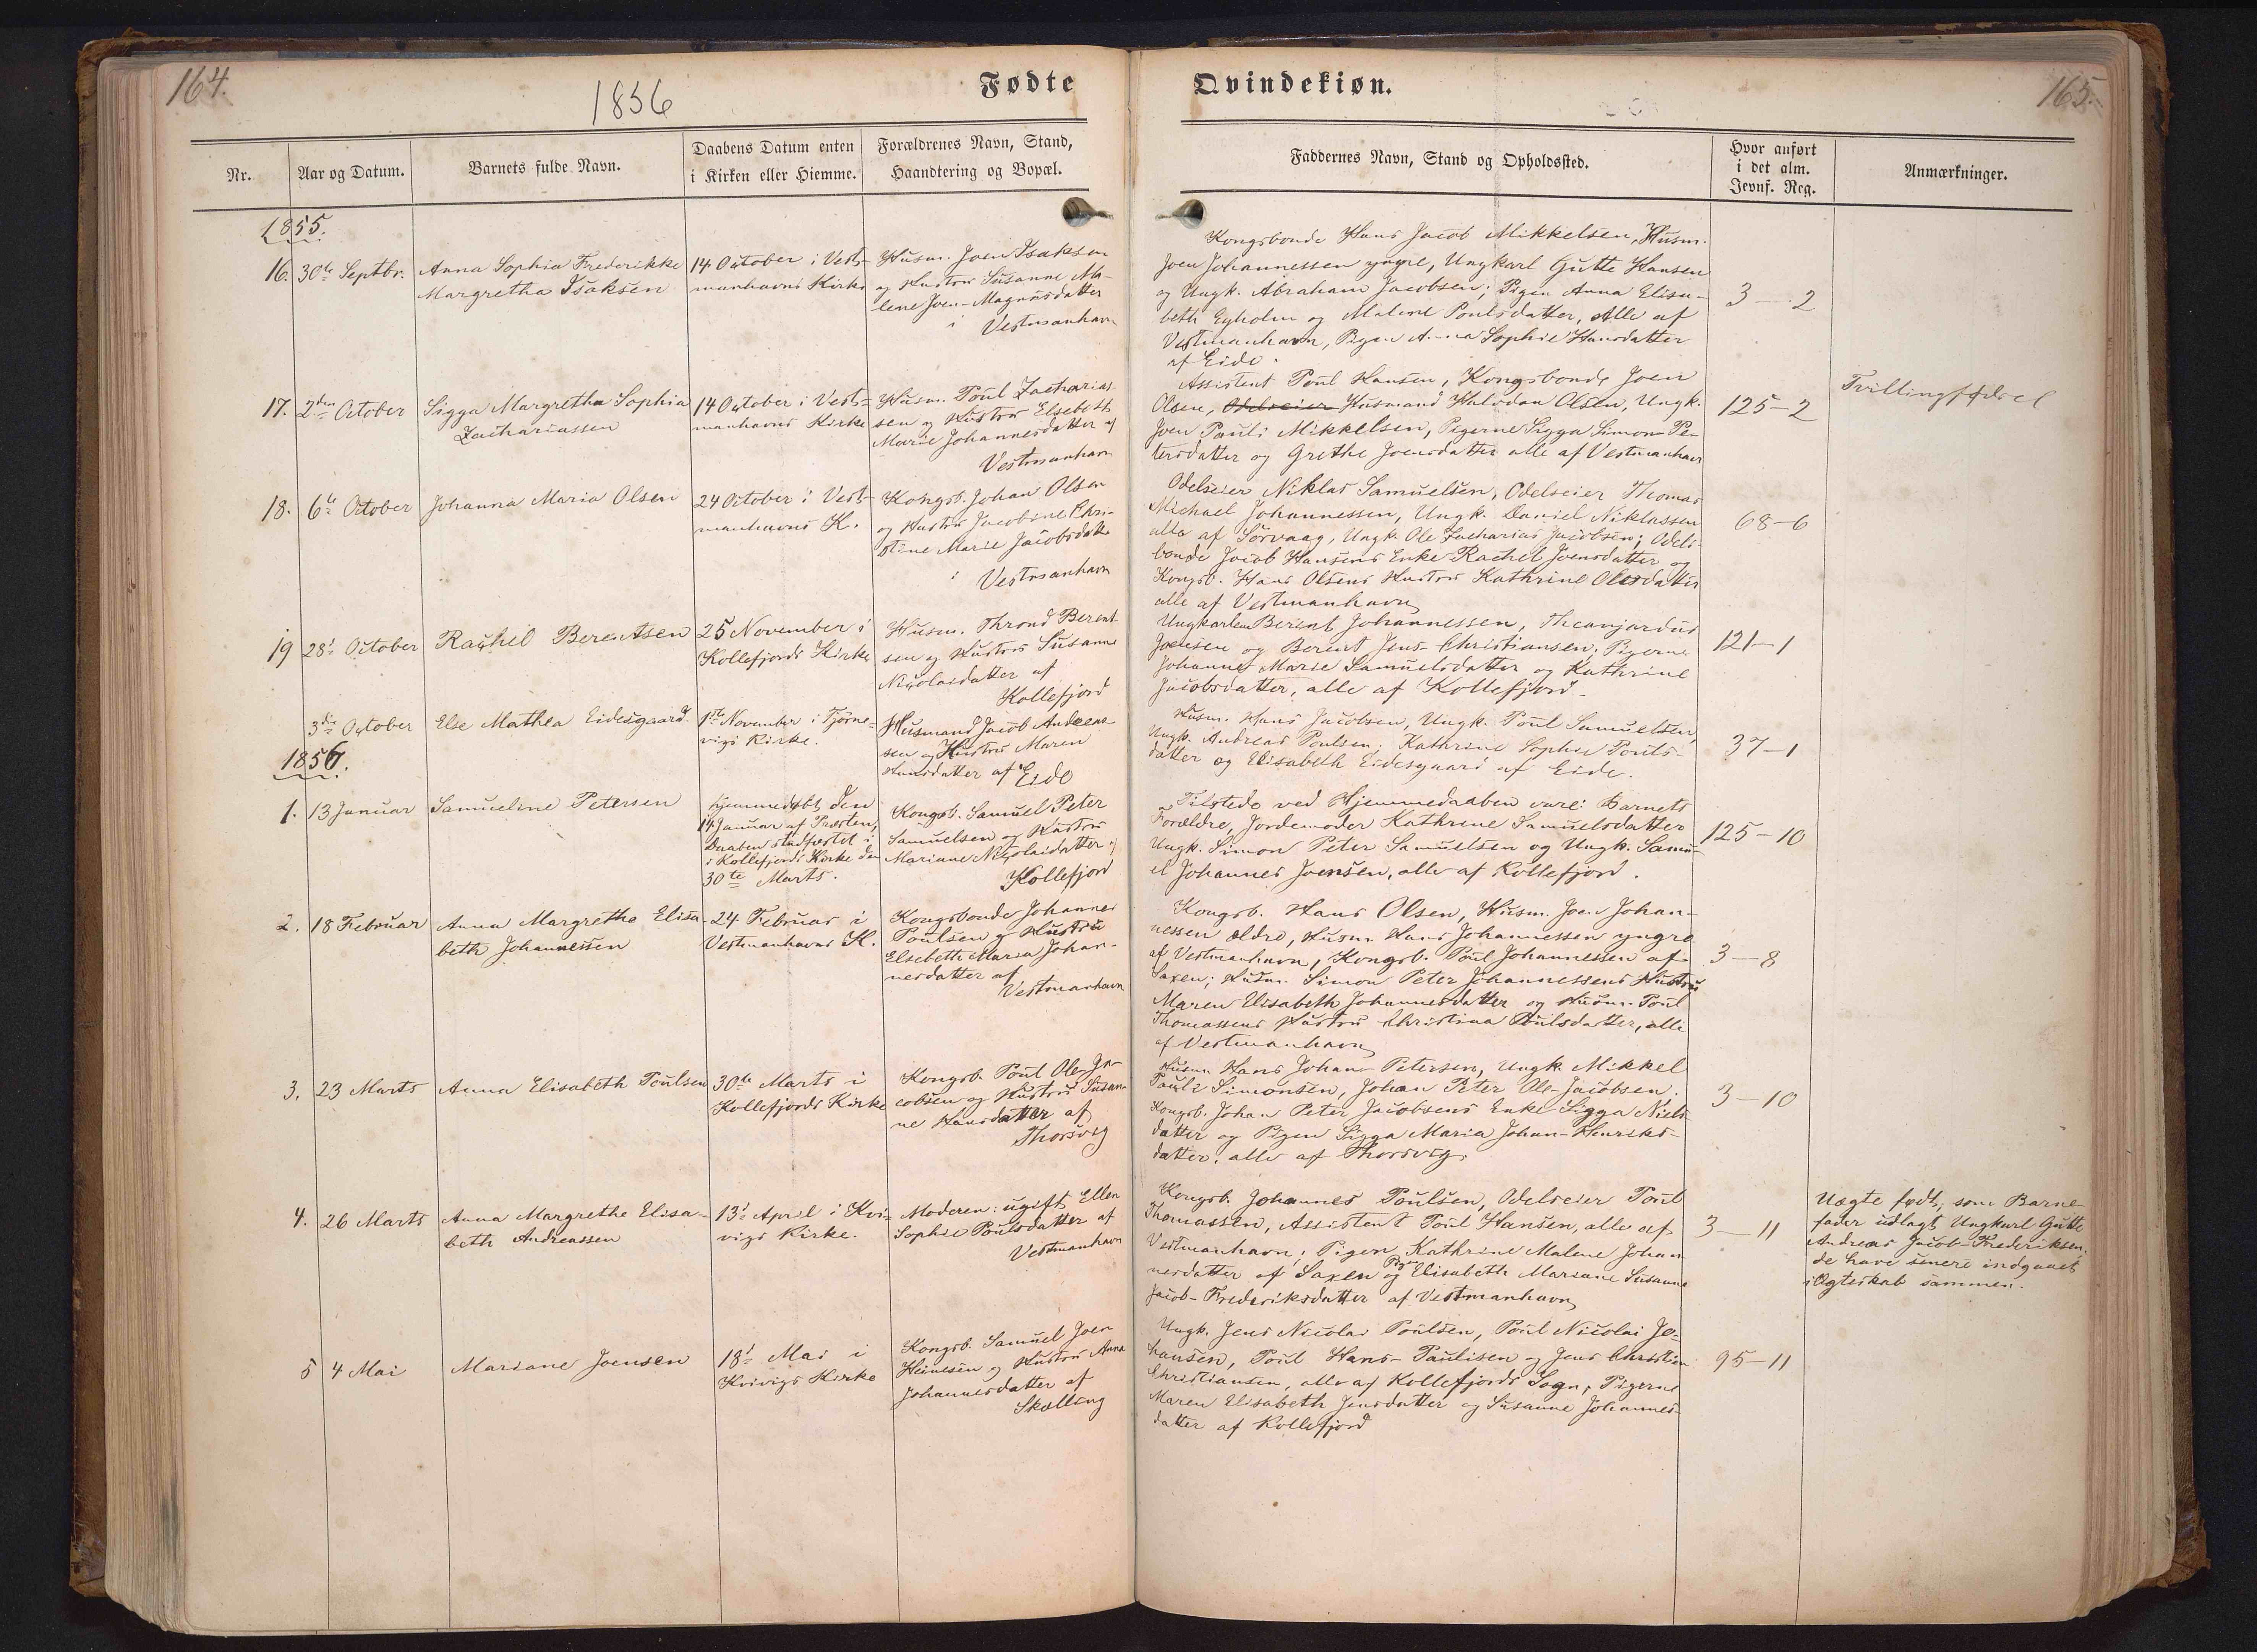 164.
1856
Fødte
Nr.
Aar og Datum.
Barnets fulde Navn.
Daabens Datum enten
i Kirken eller Hiemme.
Forældrenes Navn, Stand,
Haandtering og Bopæl.
1855.
16.
30te Septbr.
Anna Sophia Frederikke
Margretha Isaksen
14 October i Vest-
manhavns Kirke
Husm. Joen Isaksen
og Hustru Susanne Ma-
lene Joen-Magnusdatter
i Vestmanhavn
17.
2den October
Sigga Margretha Sophia
Zachariassen
14 October i Vest-
manhavns Kirke
Husm. Poul Zacharias-
sen og Hustru Elsebeth
Marie Johannesdatter af
Vestmanhavn
18.
6te October
Johanna Maria Olsen
24 October i Vest-
manhavns K.
Kongsb. Johan Olsen
og Hustru Jacobine Chri-
stine Marie Jacobsdatter
i Vestmanhavn
19
28' October
Rachel Berentsen
25 November i
Kollefjords Kirke
Husm. Thrond Berent-
sen og Hustru Susanne
Nicolaidatter af
Kollefjord
3die October
Else Mathea Eidesgaard
1ste November i Tjørne-
vigs Kirke.
Husmand Jacob Andreas-
sen og Hustru Maren
Hansdatter af Eide
1856.
1.
13 Januar
Samueline Petersen
Hjemmedøbt den
14 Januar af Præsten,
Daaben stadfæstet i
i Kollefjords Kirke den
30te Marts.
Kongsb. Samuel Peter
Samuelsen og Hustru
Mariane Nicolaidatter af
Kollefjord
2.
18 Februar
Anna Margrethe Elisa-
beth Johannessen
24. Februar i
Vestmanhavns K.
Kongsbonde Johannes
Poulsen og Hustru
Elsebeth Maria Johan-
nesdatter af
Vestmanhavn
3.
23 Marts
Anna Elisabeth Poulsen
30te Marts i
Kollefjords Kirke
Kongsb. Poul Ole-Ja-
cobsen og Hustru Susan-
ne Hansdatter af
Thorsvig
4.
26 Marts
Anna Margrethe Elisa-
beth Andreassen
13' April i Kvi-
vigs Kirke.
Moderen: ugift Ellen
Sophie Poulsdatter af
Vestmanhavn
5
4 Mai
Mariane Joensen
18' Mai i
Kvivigs Kirke
Kongsb. Samuel Joen
Heinesen og Hustru Anna
Johannesdatter af
Skælling
Qvindekiøn.
165.
Faddernes Navn, Stand og Opholdssted.
Hvor anført
i det alm.
Jevnf. Reg.
Anmærkninger.
Kongsbonde Hans Jacob Mikkelsen, Husm.
Joen Johannessen yngre, Ungkarl Gutte Hansen
og Ungk. Abraham Jacobsen; Pigen Anna Elisa-
beth Egholm og Malene Poulsdatter, Alle af
Vestmanhavn, Pigen Anna Sophie Hansdatter
af Eide.
3 — 2
Assistent Poul Hansen, Kongsbonde Joen
Olsen, Odelseier Husmand Halvdan Olsen, Ungk.
Joen Pauli Mikkelsen, Pigerne Sigga Simon-Pe-
tersdatter og Grethe Joensdatter alle af Vestmanhavn
125—2
Tvillingfødsel
Odelseier Niklas Samuelsen, Odelseier Thomas
Michael Johannessen, Ungk. Daniel Niklassen
alle af Sørvaag, Ungk. Ole Zacharias Jacobsen; Odels-
bonde Jacob Hansens Enke Rachel Joensdatter og
Kongsb. Hans Olsens Hustru Kathrine Olesdatter
alle af Vestmanhavn
68—6
Ungkarlene Berent Johannessen,
Joensen og Berent Jens-Christiansen; Pigerne
Johanne Marie Samuelsdatter og Kathrine
Jacobsdatter, alle af Kollefjord.
121—1
Husm. Hans Jacobsen, Ungk. Poul Samuelsen,
Ungk. Andreas Poulsen; Kathrine Sophie Pouls-
datter og Elisabeth Eidesgaard af Eide.
37—1
Tilstede ved Hjemmedaaben vare: Barnets
Forældre, Jordemoder Kathrine Samuelsdatter
Ungk. Simon Peter Samuelsen og Ungk. Samu-
el Johannes Joensen, alle af Kollefjord.
125—10
Kongsb. Hans Olsen, Husm. Joen Johan-
nessen ældre, Husm. Hans Johannessen yngre
af Vestmanhavn, Kongsb. Poul Johannessen af
Saxen; Husm. Simon Peter Johannessens Hustru
Maren Elisabeth Johannesdatter og Husm. Poul
Thomassens Hustru Christina Poulsdatter, alle
af Vestmanhavn
3—8
Husm. Hans Johan-Petersen, Ungk. Mikkel
Pauli Simonsen, Johan Peter Ole-Jacobsen;
Kongsb. Johan Peter Jacobsens Enke Sigga Niels-
datter og Pigen Sigga Maria Johan-Henriks-
datter, alle af Thorsvig.
3—10
Kongsb. Johannes Poulsen, Odelseier Poul
Thomassen, Assistent Poul Hansen, alle af
Vestmanhavn; Pigen Kathrine Malene Johan-
nesdatter af Saxen og Pigen Elisabeth Mariane Susanne
Jacob-Frederiksdatter af Vestmanhavn
3—11
Uægte født; som Barne-
fader udlagt Ungkarl Gutte
Andreas Jacob-Frederiksen.
de have senere indgaaet
i Ægteskab sammen.
Ungk. Jens Nicolai Poulsen, Poul Nicolai Jo-
hansen, Poul Hans-Paulisen og Jens Christian
Christiansen, alle af Kollefjords Sogn, Pigerne
Maren Elisabeth Jensdatter og Susanne Johannes-
datter af Kollefjord
95—11